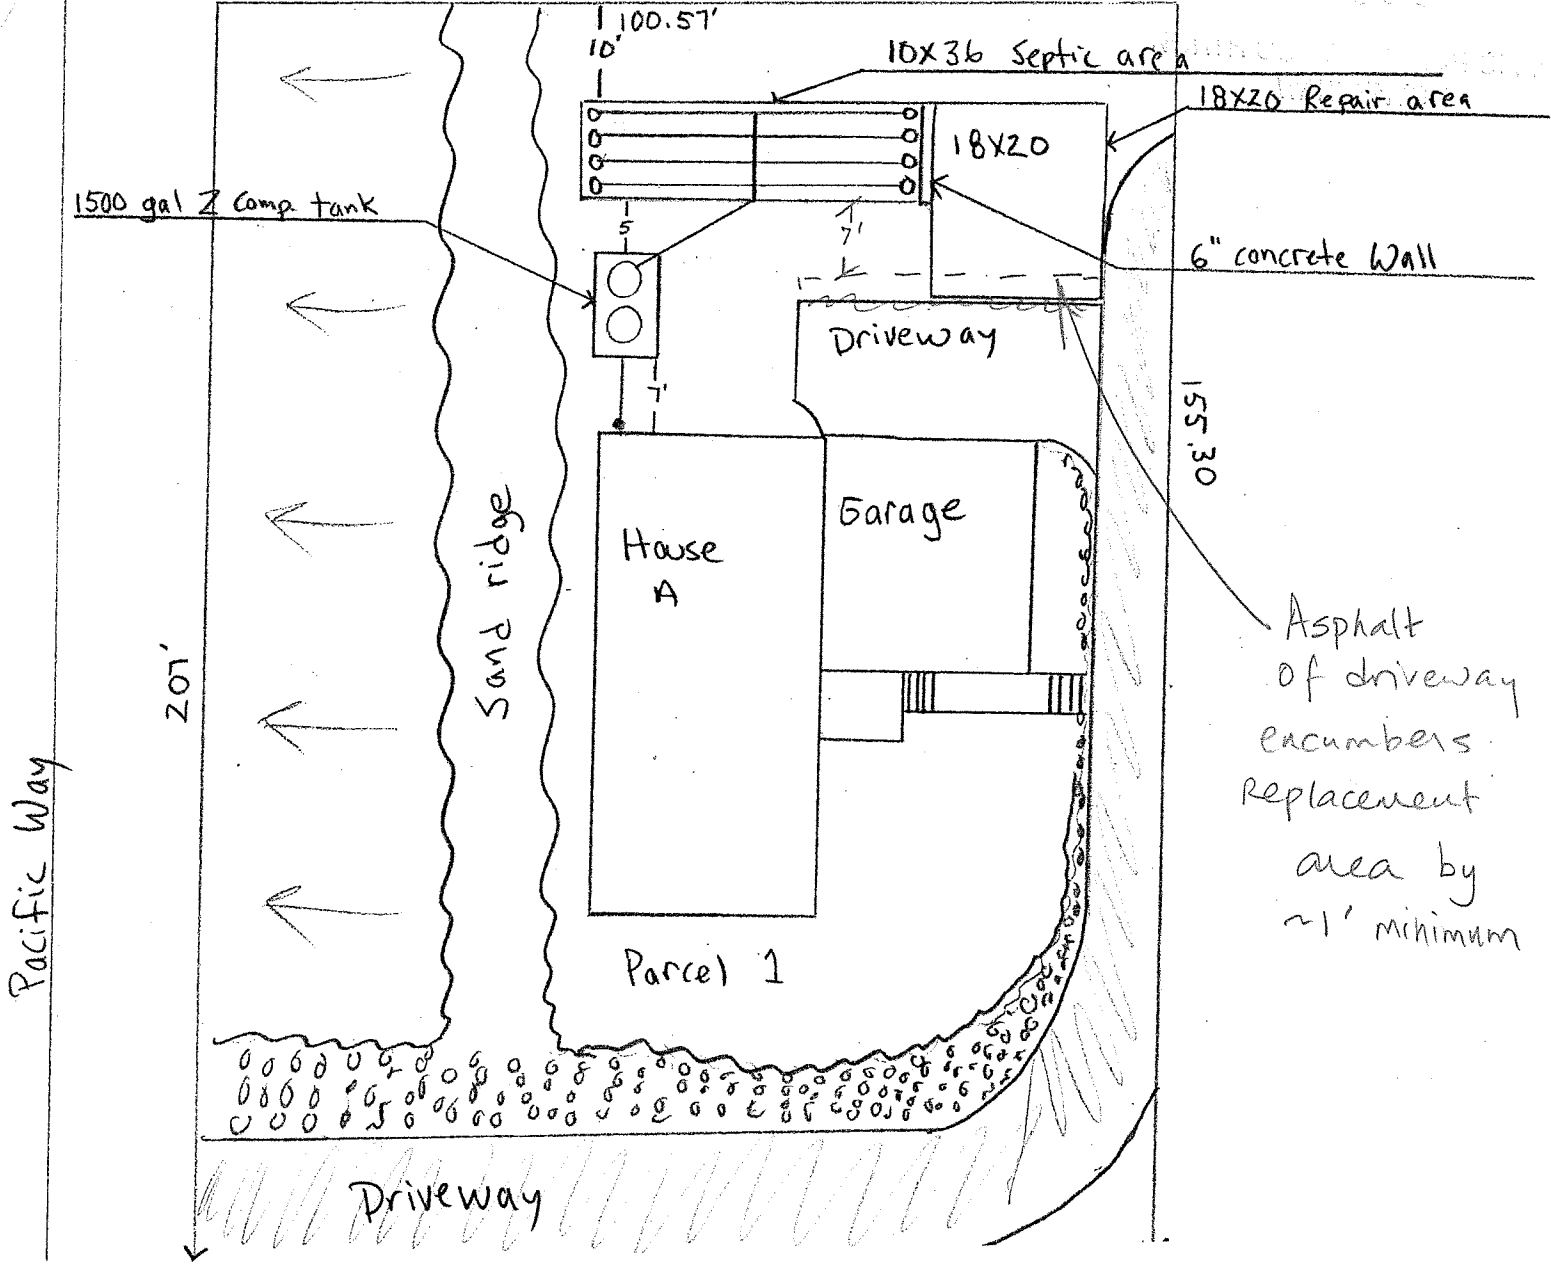 100.57'
10'
10X36 Septic area
18X20 Repair area
18X20
1500 gal 2 Comp. tank
5
7'
6" concrete Wall
Driveway
7'
155.30
Garage
House
A
Sand ridge
Asphalt
Of driveway
encumbers
Replacement
area by
~1' minimum
201'
Pacific Way
Parcel 1
Driveway